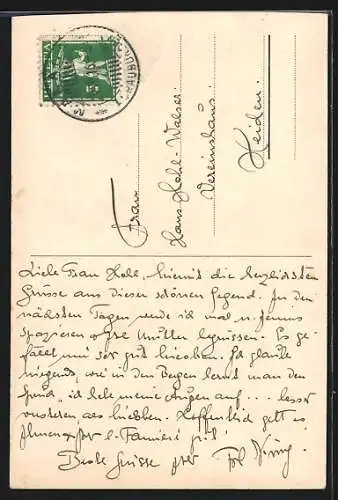 HELVETIA
5
Frau
Hans Hohl-Walser
Vereinshaus
Heiden.
Liebe Frau Hohl, hiermit die herzlichsten
Grüsse aus dieser schönen Gegend. In den
nächsten Tagen werde ich mal n.
spazieren & Ihre Mutter begrüssen. Es ge-
fällt mir sehr gut hieoben. Ich glaube
nirgends, wie in den Bergen lernt man den
Spruch „ich hebe meine Augen auf ... besser
verstehen als hieoben. Hoffentlich geht es
Ihnen & Ihrer l. Familie gut.
Beste Grüsse Ihre